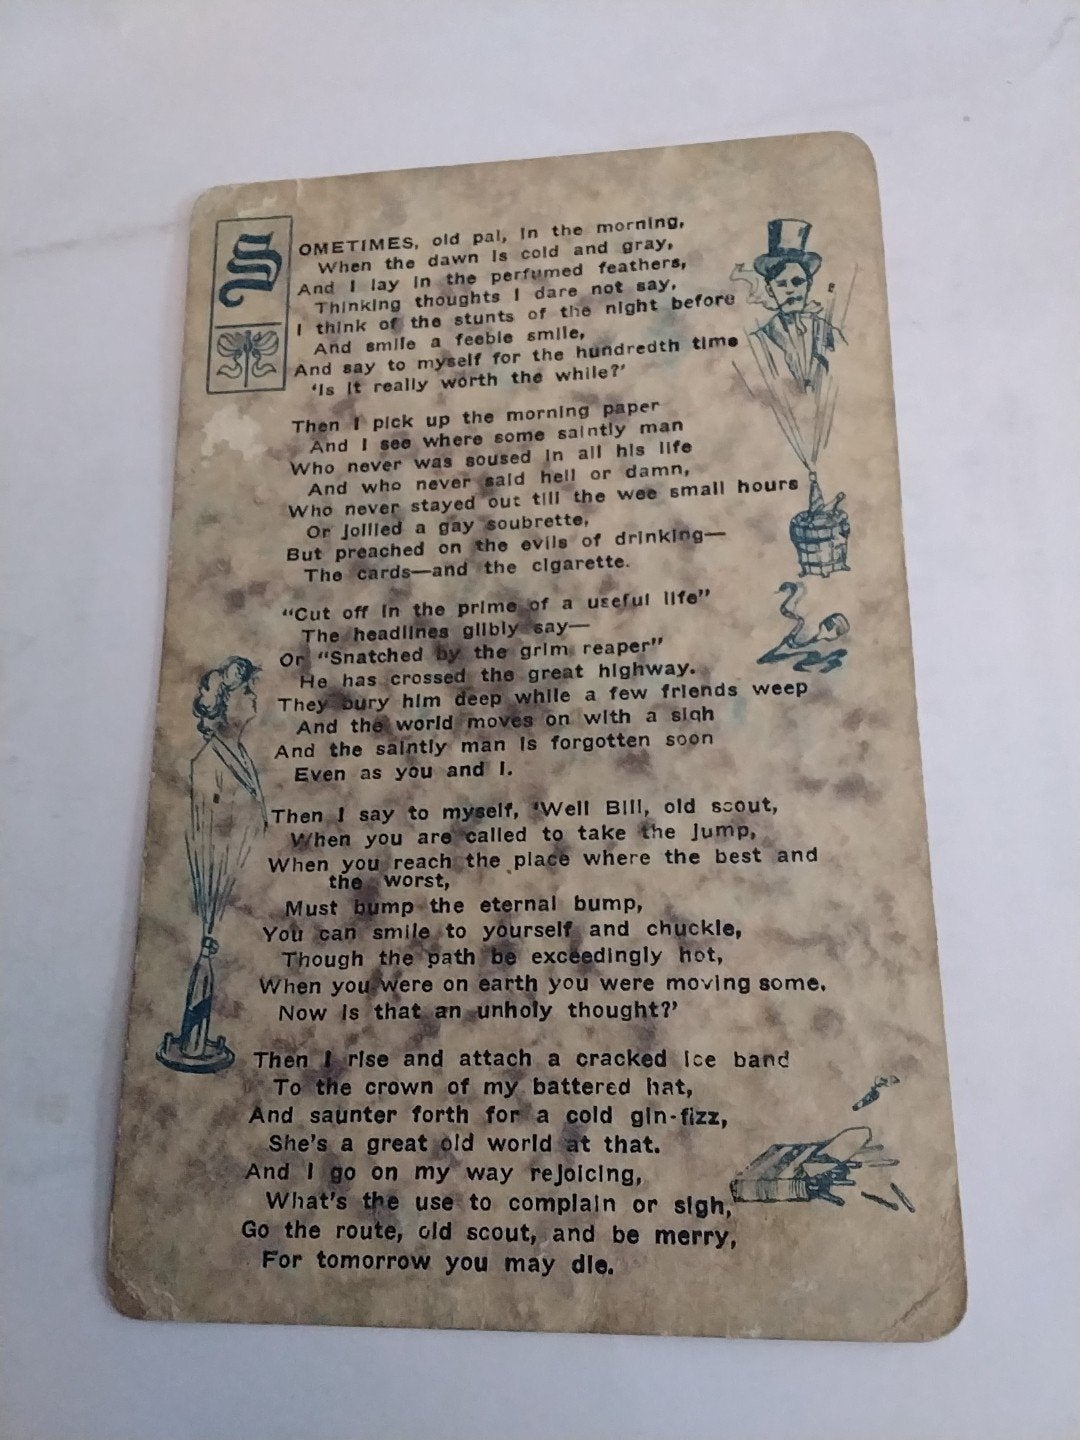 SOMETIMES, old pal, in the morning,
When the dawn is cold and gray,
And I lay in the perfumed feathers,
Thinking thoughts I dare not say,
I think of the stunts of the night before
And smile a feeble smile,
And say to myself for the hundredth time
'Is it really worth the while?'
Then I pick up the morning paper
And I see where some saintly man
Who never was soused in all his life
And who never said hell or damn,
Who never stayed out till the wee small hours
Or jollied a gay soubrette,
But preached on the evils of drinking—
The cards—and the cigarette.
"Cut off in the prime of a useful life"
The headlines glibly say—
Or "Snatched by the grim reaper"
He has crossed the great highway.
They bury him deep while a few friends weep
And the world moves on with a sigh
And the saintly man is forgotten soon
Even as you and I.
Then I say to myself, 'Well Bill, old scout,
When you are called to take the jump,
When you reach the place where the best and
the worst,
Must bump the eternal bump,
You can smile to yourself and chuckle,
Though the path be exceedingly hot,
When you were on earth you were moving some.
Now is that an unholy thought?'
Then I rise and attach a cracked ice band
To the crown of my battered hat,
And saunter forth for a cold gin-fizz,
She's a great old world at that.
And I go on my way rejoicing,
What's the use to complain or sigh,
Go the route, old scout, and be merry,
For tomorrow you may die.